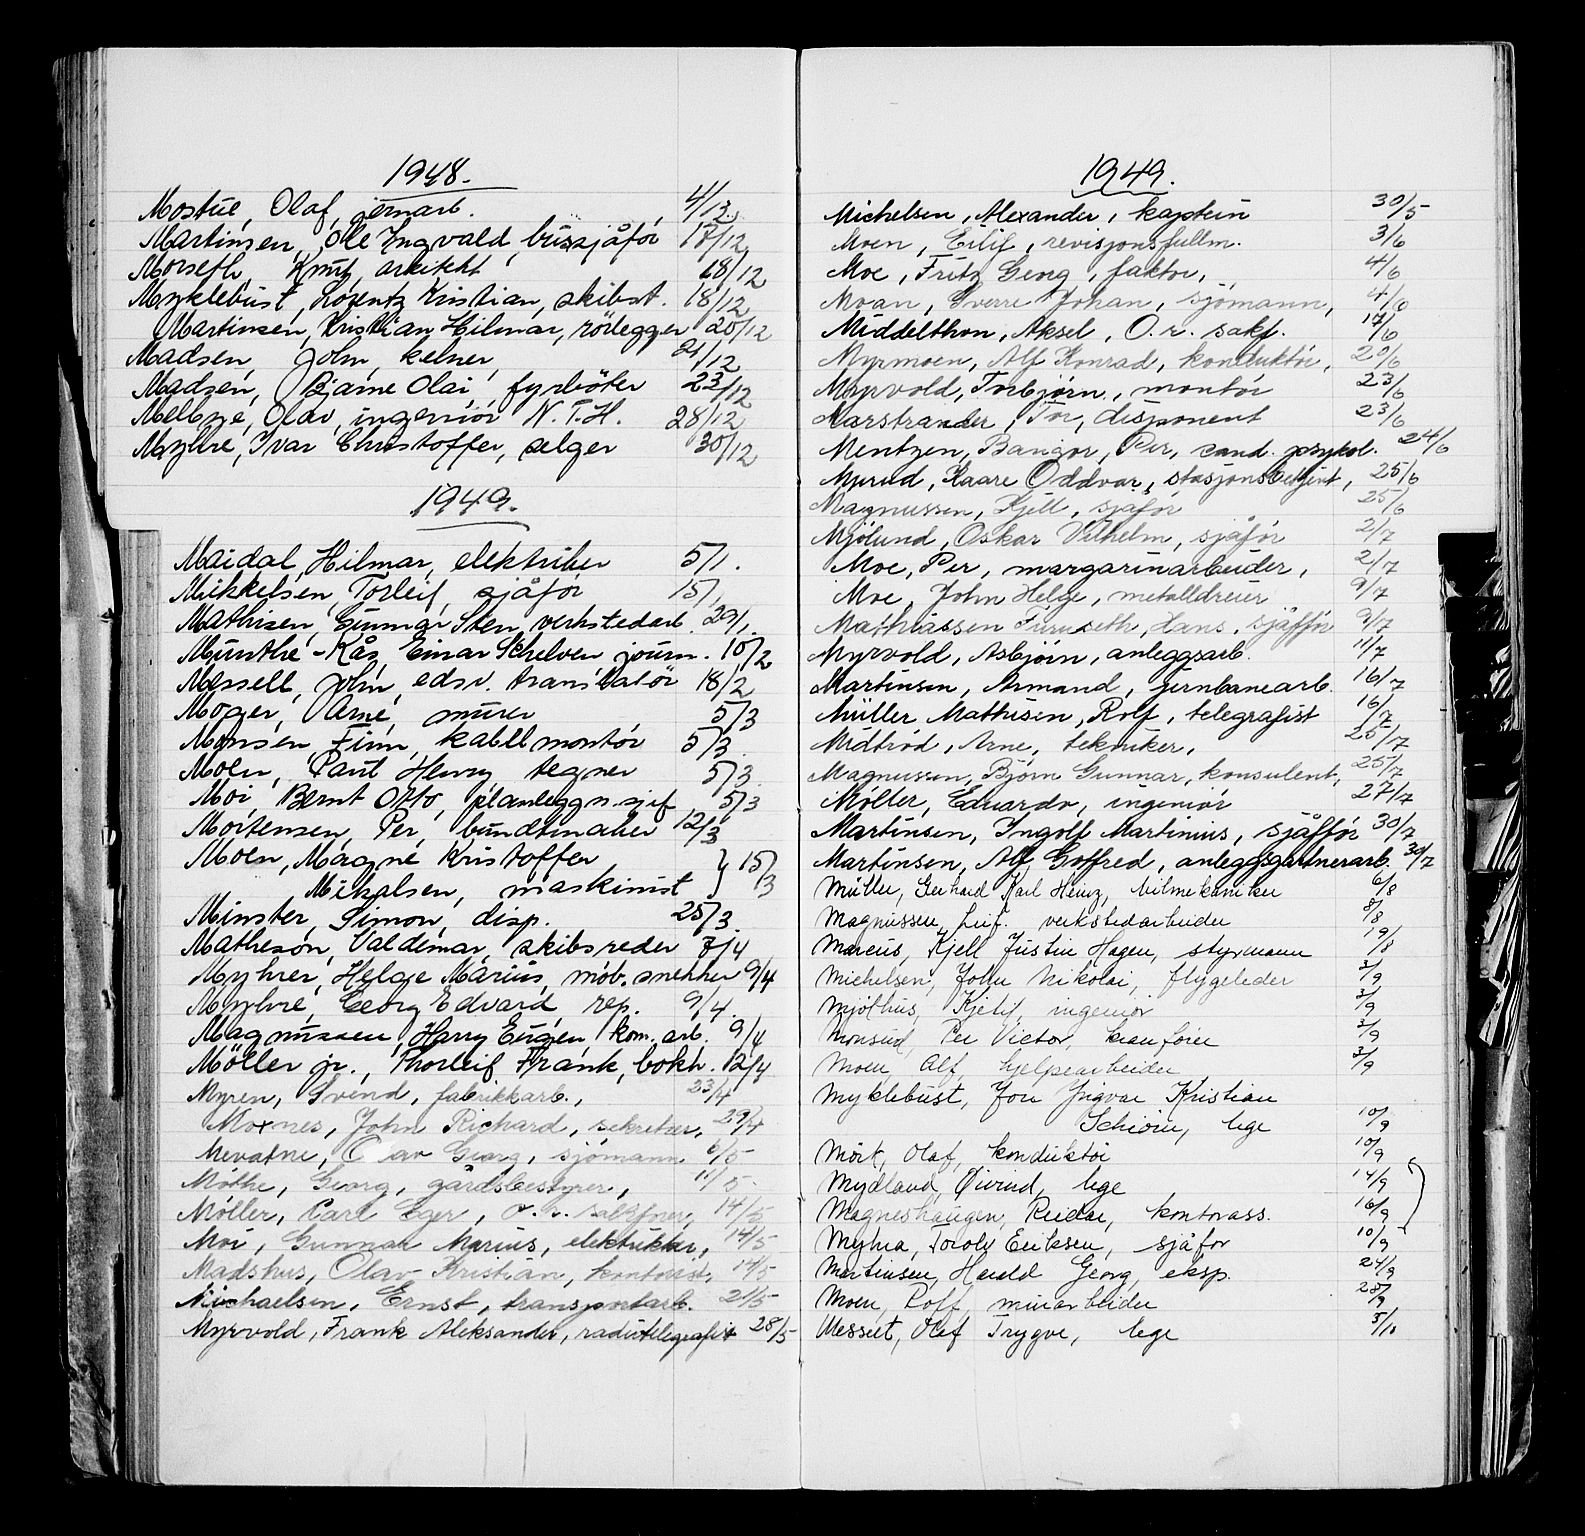 1948.
Mostue, Olaf, jernarb. 4/12.
Martinsen, Ole Ingvald, bussjåfør 17/12
Morseth, Knut, arkitekt 18/12
Myklebust, Lorentz Kristian, skibst. 18/12
Martinsen, Kristian Hilmar, rörlegger 20/12
Madsen, John, kelner, 21/12
Madsen, Bjarne Olai, fyrböter 23/12
Melbye, Olav, ingeniör N.T.H. 28/12
Myhre, Ivar Christoffer, selger 30/12
1949.
Maidal, Hilmar, elektriker 5/1.
Mikkelsen, Torleif, sjåför 15/1
Mathisen, Gunnar Sten, verkstedarb. 29/1.
Munthe-Kås, Einar Schelven journ. 10/2
Messell, John, edsv. translatör 18/2
Moger, Arne, murer 5/3
Monsen, Finn, kabelmontör 5/3
Moen, Paul Henry tegner 5/3
Moi, Bernt Otto, planleggn.sjef 5/3
Mortensen, Per, buntmaker 12/3
Moen, Magne Kristoffer
Mikalsen, maskinist } 15/3
Minster, Simon, disp. 25/3.
Matheson, Valdemar, skibsreder 7/4
Myhrer, Helge Marius, möb.snekker 9/4
Myhre, Georg Edvard, rep. 9/4.
Magnussen, Harry Eugen, kom. arb. 9/4
Möller jr., Thorleif Frank, bokh. 12/4
Myren, Svend, fabrikkarb., 23/4
Moxnes, John Richard, sekretær, 29/4
Mevatne, O av Georg, sjömann 6/5
Møthe, Georg, gårdsbestyrer, 11/5
Møller, Carl Eger, o.r. sakfører, 14/5
Moi, Gunnar Marius, elektriker, 14/5
Madshus, Olav Kristian, kontorist, 14/5
Michaelsen, Ernst, transportarb. 21/5
Myrvold, Frank Aleksander, radiotelegrafist 28/5
1949.
Michelsen, Alexander, kaptein 30/5
Moen, Eilif, revisjonsfullm. 3/6
Moe, Fritz Georg, faktor, 4/6
Moan, Sverre Johan, sjömann, 4/6
Middelthon, Aksel, O.r. sakf. 17/6
Myrmoen, Alf Konrad, konduktör, 20/6
Myrvold, Torbjørn, montör 23/6
Marstrander, Tor, disponent 23/6
Mentzen, Bangor, Per, cand. psykol. 24/6
Myrud, Kaare Oddvar, stasjonsbetjent, 25/6
Magnussen, Kjell, sjåför 25/6
Mjølund, Oskar Vilhelm, sjåför 2/7
Moe, Per, margarinarbeider, 2/7
Moe, John Helge, metalldreier 9/7
Mathiassen Furuseth, Hans, sjåffør 9/7
Myrvold, Asbjørn, anleggsarb. 11/7
Martinsen, Armand, jernbanearb. 16/7
Müller Mathisen, Rolf, telegrafist 16/7
Midtrød, Arne, tekniker, 25/7
Magnussen, Bjørn Gunnar, konsulent, 25/7
Møller, Eduardo, ingeniör 27/7
Martinsen, Ingolf Martinius, sjåffør 30/7
Martinsen, Alf Gotfred, anleggsgartnerarb. 30/7
Müller, Gerhard Karl Heinz, bilmekaniker 6/8
Magnussen, Leif. verkstedarbeider 8/8
Marcus, Kjell Justin Hagen, styrmann 19/8
Michelsen, John Nikolai, flygeleder 3/9
Mjölhus, Kjetil, ingeniör 3/9
Monsrud, Per Victor, kranfører 3/9
Moen, Alf, hjelpearbeider 3/9
Myklebust, Jon Yngvar Kristian
Schiöm, lege 10/9
Mörk, Olaf, konduktör 10/9
Mydland, Øivind, lege 14/9
Magneshaugen, Reidar, kontorass. 16/9
Myhra, Torolv Eriksen, sjåfør 10/9
Martinsen, Harald Georg, eksp. 24/9
Moen, Rolf, murarbeider 28/9
Messelt, Olaf Trygve, lege 5/10